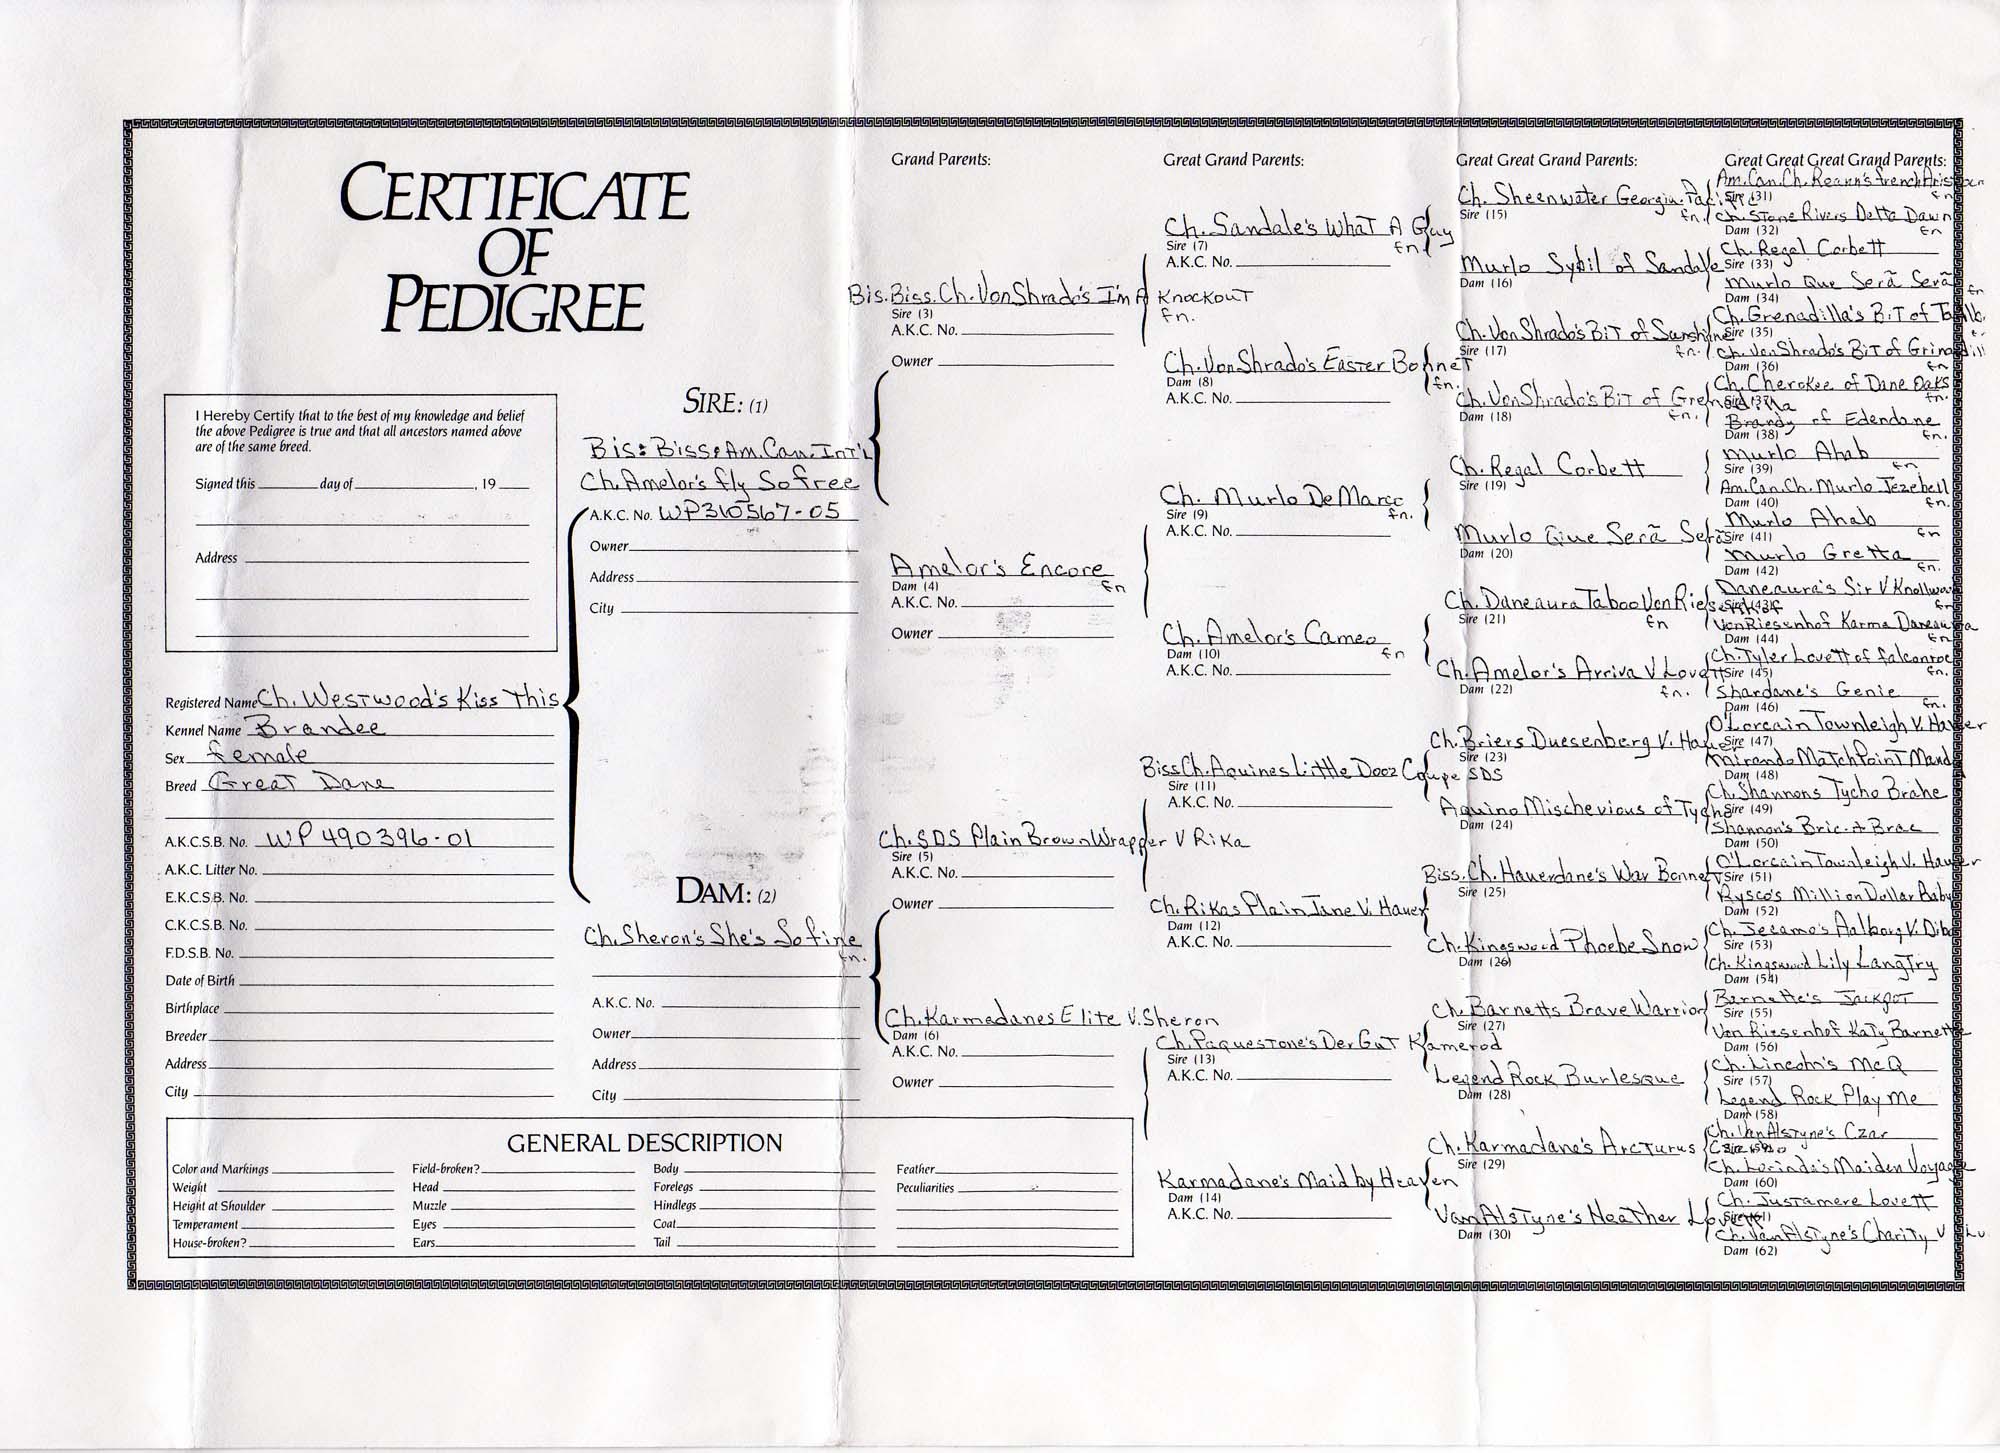 CERTIFICATE
OF
PEDIGREE
I Hereby Certify that to the best of my knowledge and belief
the above Pedigree is true and that all ancestors named above
are of the same breed.
Signed this day of , 19
Address
Registered Name Ch. Westwood's Kiss This
Kennel Name Brandee
Sex female
Breed Great Dane
A.K.C.S.B. No. WP 490396-01
A.K.C. Litter No.
E.K.C.S.B. No.
C.K.C.S.B. No.
F.D.S.B. No.
Date of Birth
Birthplace
Breeder
Address
City
SIRE: (1)
Bis: Biss: Am. Can. Int'l
Ch. Amelor's fly So free
A.K.C. No. WP310567-05
Owner
Address
City
DAM: (2)
Ch. Sheron's She's So fine
fn.
A.K.C. No.
Owner
Address
City
Grand Parents:
Bis. Biss. Ch. VonShrado's I'm A Knockout
Sire (3) fn.
A.K.C. No.
Owner
Amelor's Encore
Dam (4) fn
A.K.C. No.
Owner
Ch. SDS Plain Brown Wrapper V Rika
Sire (5)
A.K.C. No.
Owner
Ch. Karmadanes Elite V. Sheron
Dam (6)
A.K.C. No.
Owner
Great Grand Parents:
Ch. Sandale's What A Guy
Sire (7) fn.
A.K.C. No.
Ch. VonShrado's Easter Bonnet
Dam (8) fn.
A.K.C. No.
Ch. Murlo DeMarco
Sire (9) fn.
A.K.C. No.
Ch. Amelor's Cameo
Dam (10) fn
A.K.C. No.
Biss Ch. Aquines Little Dooz Coupe SDS
Sire (11)
A.K.C. No.
Ch. Rikas Plain Jane V. Hauer
Dam (12)
A.K.C. No.
Ch. Paquestone's Der Gut Kamerod
Sire (13)
A.K.C. No.
Karmadane's Maid by Heaven
Dam (14)
A.K.C. No.
Great Great Grand Parents:
Ch. Sheenwater Georgia Pacific
Sire (15) fn.
Murlo Sybil of Sandale
Dam (16)
Ch. VonShrado's Bit of Sunshine
Sire (17) fn.
Ch. VonShrado's Bit of Grenadilla
Dam (18) fn.
Ch. Regal Corbett
Sire (19)
Murlo Que Serã Serã
Dam (20)
Ch. Daneaura Taboo Von Riesenhof
Sire (21) fn
Ch. Amelor's Arriva V Lovett
Dam (22) fn.
Ch. Briers Duesenberg V. Hauer
Sire (23)
Aquino Mischevious of Tycho
Dam (24)
Biss. Ch. Hauerdane's War Bonnett
Sire (25)
Ch. Kingswood Phoebe Snow
Dam (26)
Ch. Barnetts Brave Warrior
Sire (27)
Legend Rock Burlesque
Dam (28)
Ch. Karmadane's Arcturus
Sire (29)
VanAlstyne's Heather Lovett
Dam (30)
Great Great Great Grand Parents:
Am. Can. Ch. Reann's french
Sire (31) fn
Ch. Stone Rivers Delta Dawn
Dam (32) fn
Ch. Regal Corbett
Sire (33)
Murlo Que Serã Serã
Dam (34) fn
Ch. Grenadilla's Bit of
Sire (35)
Ch. VonShrado's Bit of
Dam (36) fn
Ch. Cherokee of Dane Oaks
Sire (37) fn.
Brandy of Edendane
Dam (38) fn.
Murlo Ahab
Sire (39) fn
Am. Can. Ch. Murlo Jezebell
Dam (40) fn.
Murlo Ahab
Sire (41) fn
Murlo Gretta
Dam (42) fn.
Daneaura's Sir V
Sire (43) fn
VonRiesenhof Karma Daneaura
Dam (44) fn.
Ch. Tyler Lovett of falconroc
Sire (45) fn.
Shardane's Genie
Dam (46) fn.
O'Lorcain Townleigh V. Hauer
Sire (47)
Mirando MatchPoint
Dam (48)
Ch. Shannons Tycho Brahe
Sire (49)
Shannon's Bric-A-Brac
Dam (50)
O'Lorcain Townleigh V. Hauer
Sire (51)
Rysco's Million Dollar Baby
Dam (52)
Ch. Jecamo's Aalborg V.
Sire (53)
Ch. Kingswood Lily Langtry
Dam (54)
Barnette's Jackpot
Sire (55)
Von Riesenhof Katy Barnette
Dam (56)
Ch. Lincoln's McQ
Sire (57)
Legend Rock Play Me
Dam (58)
Ch. VanAlstyne's Czar
Sire (59)
Ch. Lorinda's Maiden Voyage
Dam (60)
Ch. Justamere Lovett
Sire (61)
Ch. VanAlstyne's Charity V
Dam (62)
GENERAL DESCRIPTION
Color and Markings Field-broken? Body Feather
Weight Head Forelegs Peculiarities
Height at Shoulder Muzzle Hindlegs
Temperament Eyes Coat
House-broken? Ears Tail